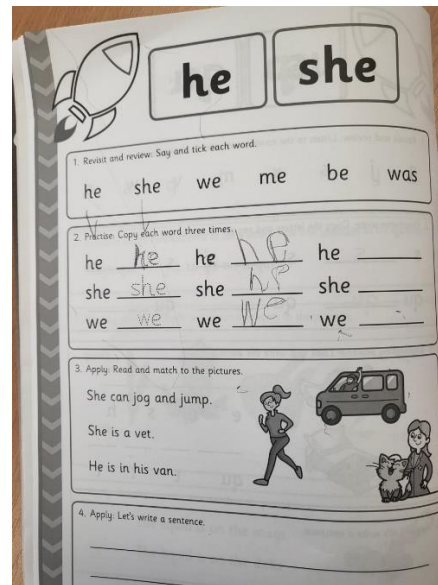 he she
1. Revisit and review: Say and tick each word.
he she we me be was
2. Practise: Copy each word three times.
he he he he he
she she she she
we we we we we
3. Apply: Read and match to the pictures.
She can jog and jump.
She is a vet.
He is in his van.
4. Apply: Let's write a sentence.